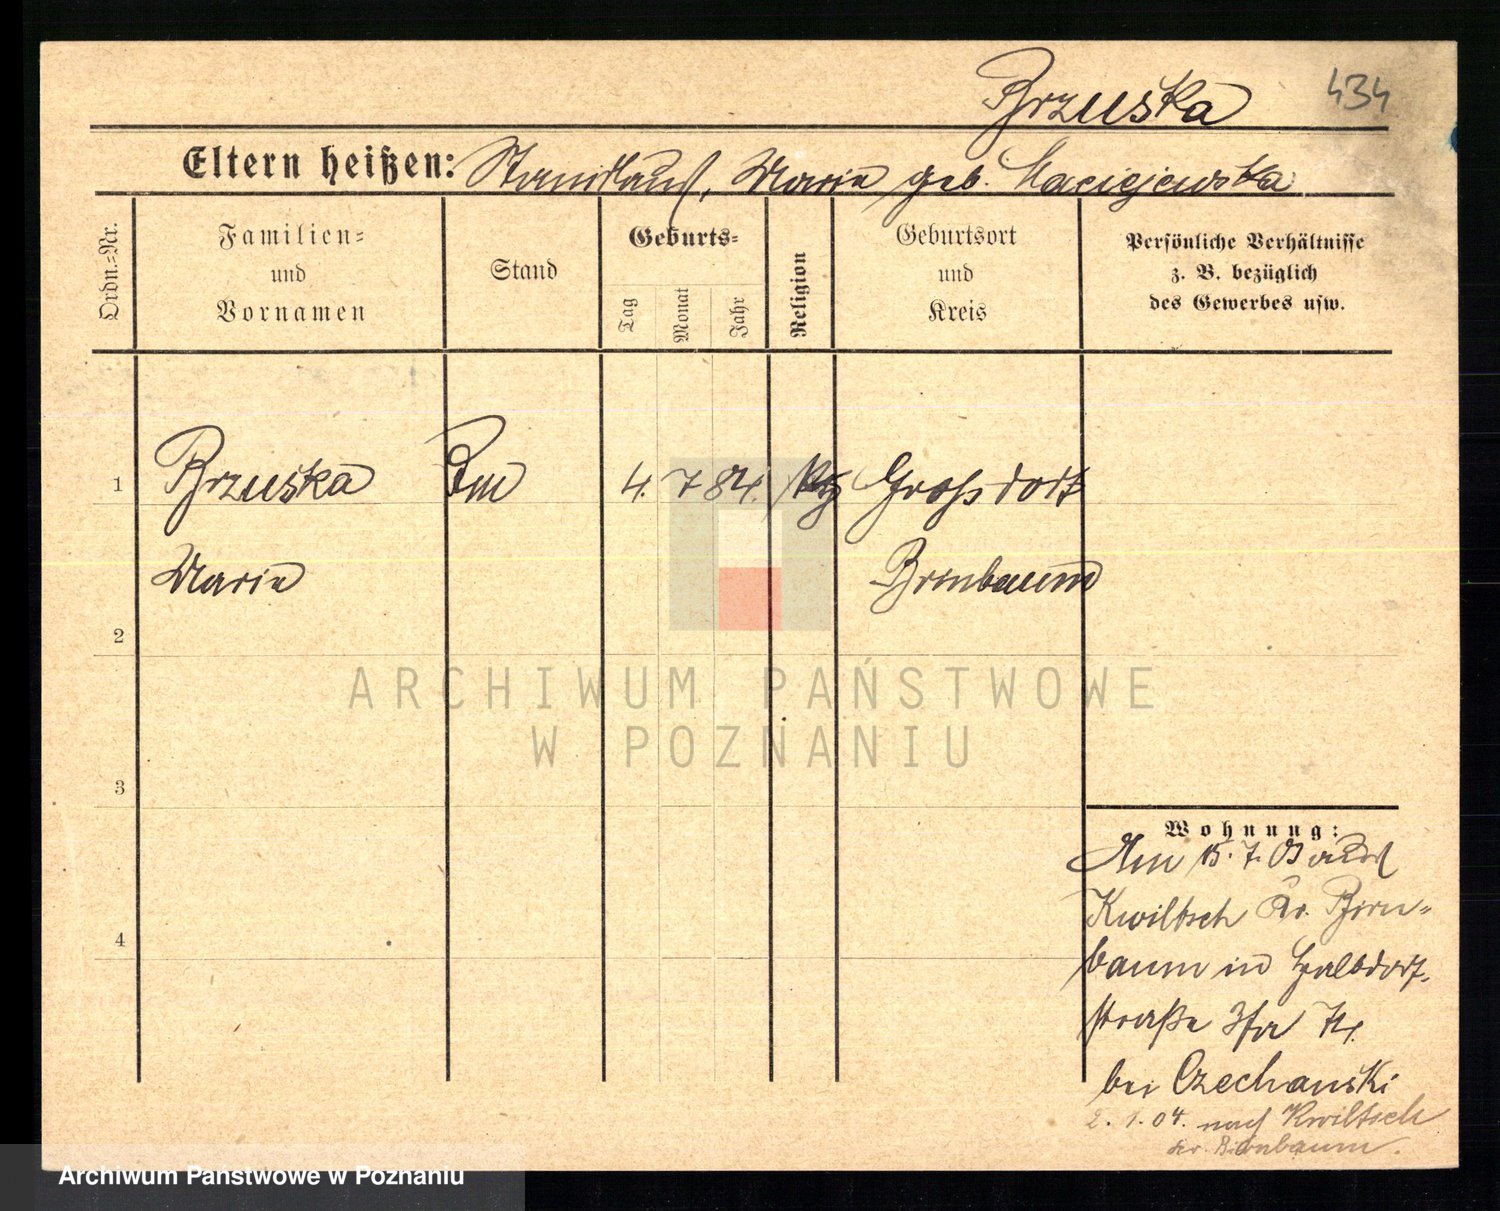 Brzuska 434
Eltern heißen: Stanislaus, Maria geb. Maciejewska
Ordn.=Nr.
Familien=
und
Vornamen
Stand
Geburts=
Tag
Monat
Jahr
Religion
Geburtsort
und
Kreis
Persönliche Verhältnisse
z. B. bezüglich
des Gewerbes usw.
1 Brzuska 4. 7 84. Grossdorf
Maria Birnbaum
2
3
4
Wohnung:
Am 15. 7. 03 aus
Kwiltsch Kr. Birn=
baum in Halbdorf=
straße 3
bei Czechanski
2. 1. 04. nach Kwiltsch
Kr. Birnbaum.
ARCHIWUM PAŃSTWOWE
W POZNANIU
Archiwum Państwowe w Poznaniu